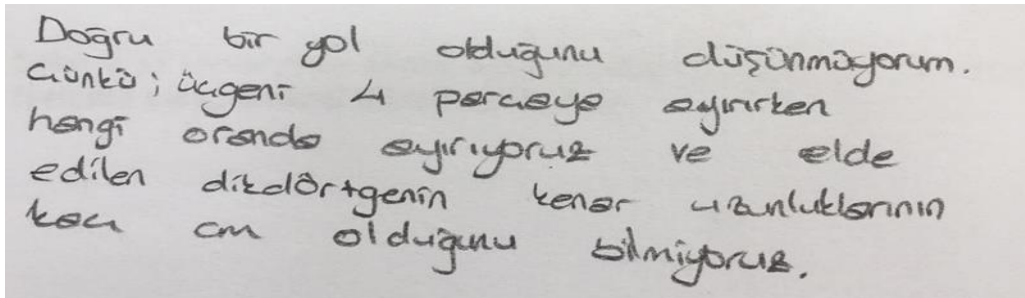 Doğru bir yol olduğunu düşünmüyorum.
Çünkü; üçgeni 4 parçaya ayırırken
hangi oranda ayırıyoruz ve elde
edilen dikdörtgenin kenar uzunluklarının
kaç cm olduğunu bilmiyoruz.